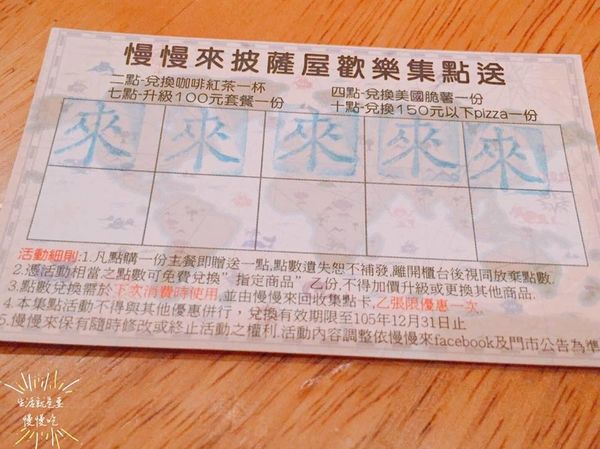 慢慢來披薩屋歡樂集點送
二點-兌換咖啡紅茶一杯 四點-兌換美國脆薯一份
七點-升級100元套餐一份 十點-兌換150元以下pizza一份
來 來 來 來 來
活動細則:1.凡點購一份主餐即贈送一點,點數遺失恕不補發,離開櫃台後視同放棄點數.
2.憑活動相當之點數可免費兌換"指定商品"乙份,不得加價升級或更換其他商品.
3.點數兌換需於下次消費時使用,並由慢慢來回收集點卡,乙張限優惠一次.
4.本集點活動不得與其他優惠併行,兌換有效期限至105年12月31日止
5.慢慢來保有隨時修改或終止活動之權利.活動內容調整依慢慢來facebook及門市公告為準
生活就是要
慢慢吃